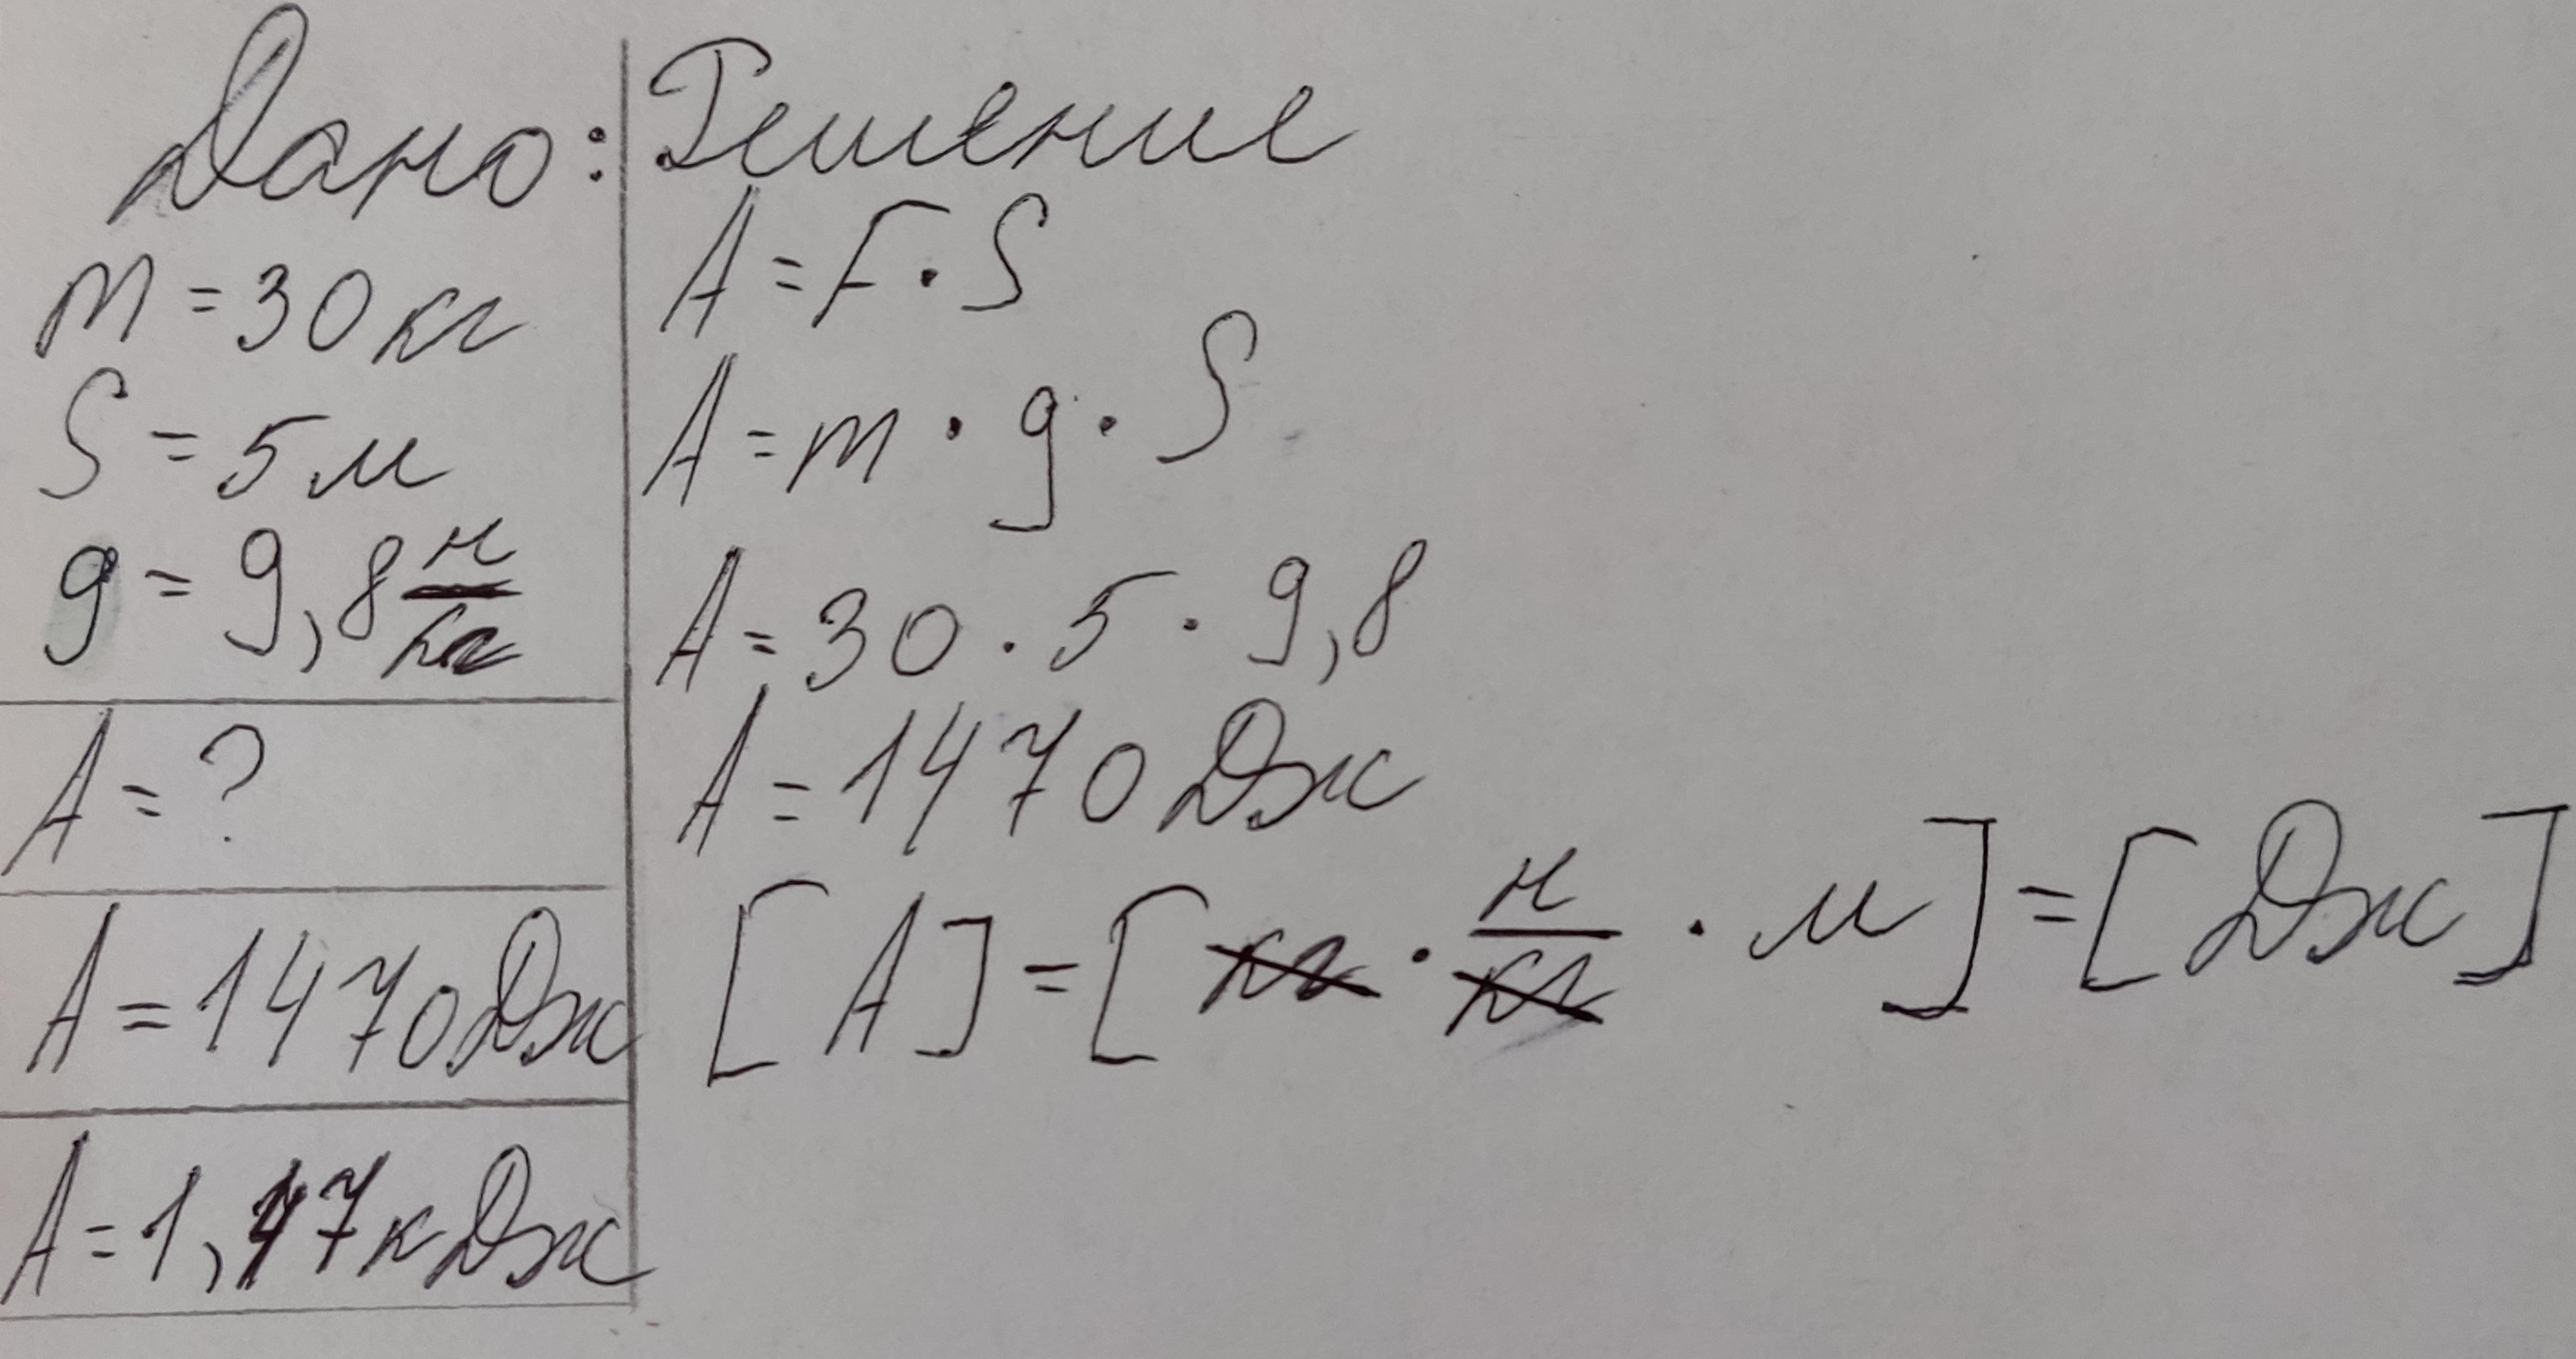 Дано:
m = 30 кг
S = 5 м
g = 9,8 н/кг
A = ?
A = 1470 Дж
A = 1,47 кДж
Решение
A = F · S
A = m · g · S
A = 30 · 5 · 9,8
A = 1470 Дж
[A] = [кг · н/кг · м] = [Дж]